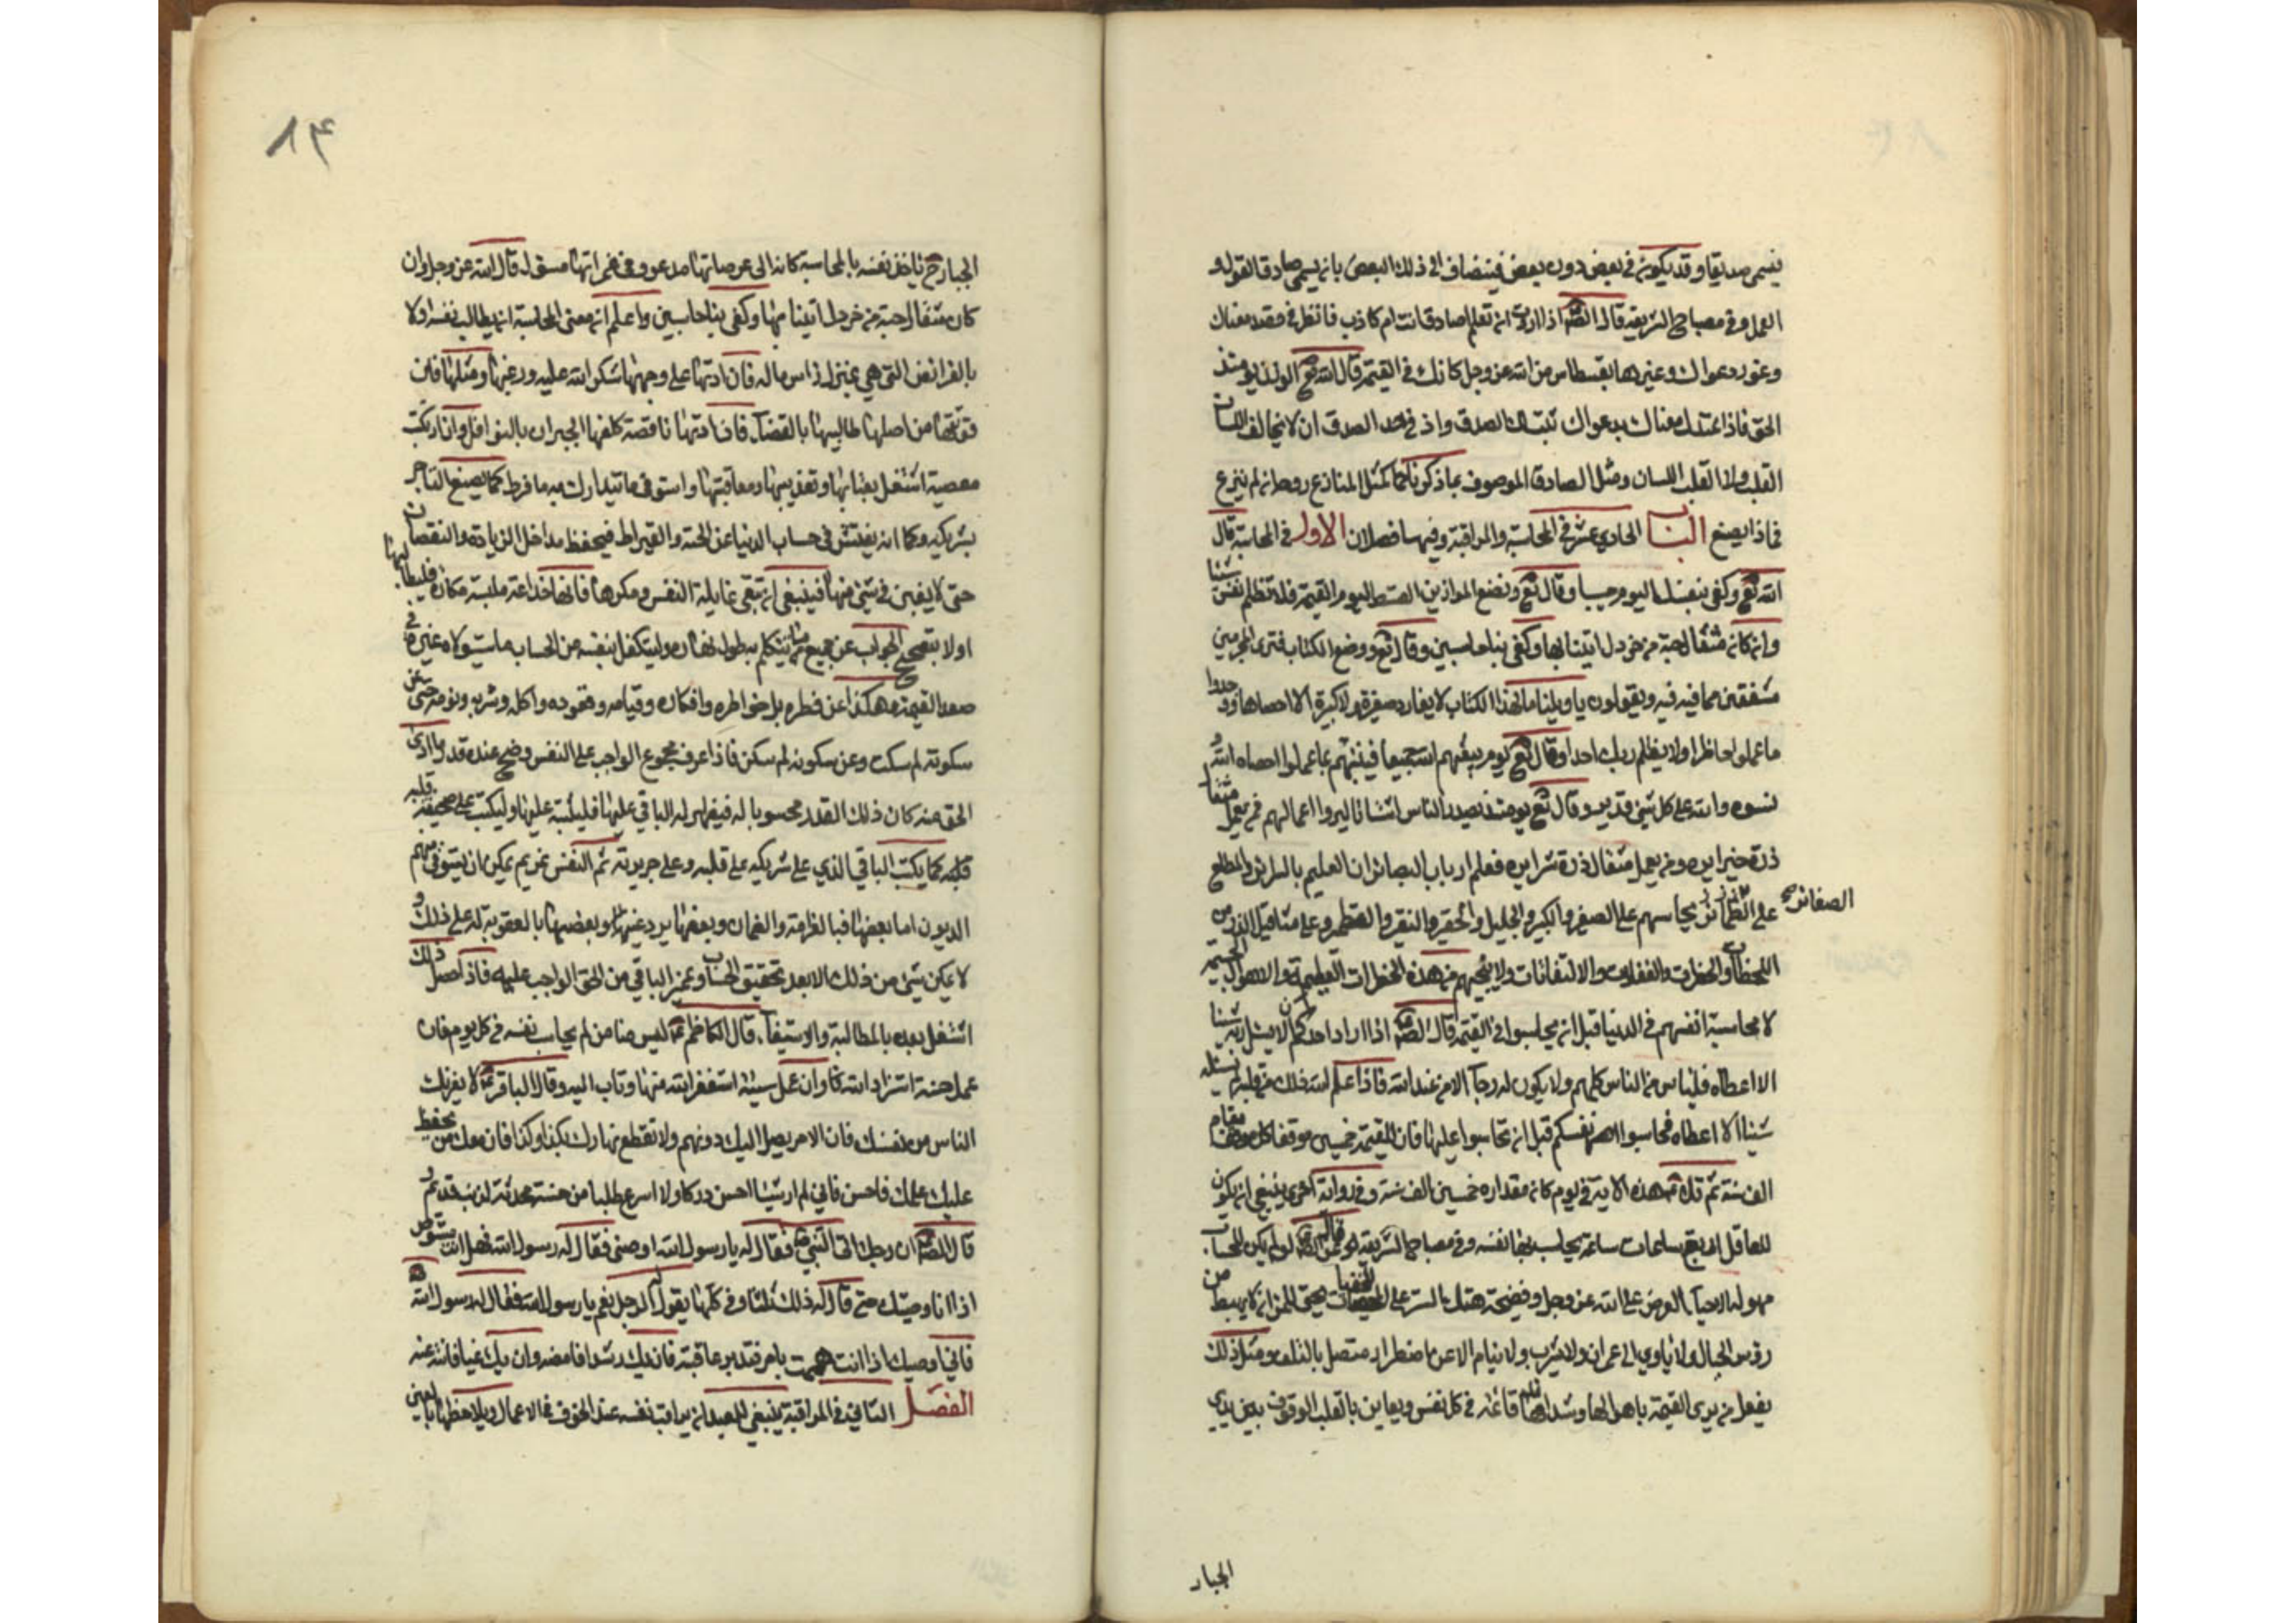 يسمى صديقا وقد يكون في بعض دون بعض فينضاف الى ذلك البعض بانه يسمى صادقا القول و
العمل وفي مصباح الشريعة قال الصّ اذا اردت ان تعلم اصادق انت ام كاذب فانظر في قصد معناك
وغور دعواك وعيرها بقسطاس من الله عز وجل كانك في القيمة قال الله تع الوزن يومئذ
الحق فاذا اعتدل معناك بدعواك ثبت لك الصدق واد في حد الصدق ان لا يخالف اللسان
القلب ولا القلب اللسان ومثل الصادق الموصوف بما ذكرناه كمثل المنازع روحه ان لم ينزع
فماذا يصنع الباب الحادي عشر في المحاسبة والمراقبة وفيها فصلان الاول في المحاسبة قال
الله تع وكفى بنفسك اليوم حسيبا وقال تع ونضع الموازين القسط ليوم القيمة فلا تظلم نفس شيئا
وان كان مثقال حبة من خردل اتينا بها وكفى بنا حاسبين وقال تع ووضع الكتاب فترى المجرمين
مشفقين مما فيه ويقولون يا ويلتنا ما لهذا الكتاب لا يغادر صغيرة ولا كبيرة الا احصاها ووجدوا
ما عملوا حاضرا ولا يظلم ربك احدا وقال تع يوم يبعثهم الله جميعا فينبئهم بما عملوا احصاه الله و
نسوه والله على كل شئ وقال تع يومئذ يصدر الناس اشتاتا ليروا اعمالهم فمن يعمل مثقال
ذرة خيرا يره ومن يعمل مثقال ذرة شرا يره فعلم ارباب البصائر ان العليم بالسرائر والمطلع
على الضمائر يحاسبهم على الصغير والكبير والجليل والحقير والنقير والقطمير وعلى مثاقيل الذر من
الصفائر
اللحظات والخطرات والغفلات والالتفاتات ولا ينجيهم من هذه الخطرات العظيمة والاهوال الجسيمة
الا محاسبة انفسهم في الدنيا قبل ان يحاسبوا في القيمة قال الصّ اذا اراد احدكم ان لا يسئل ربه شيئا
الا اعطاه فليياس من الناس كلهم ولا يكون له رجآ الا من عند الله فاذا علم الله ذلك من قلبه لم يسئله
شيئا الا اعطاه فحاسبوا انفسكم قبل ان تحاسبوا عليها فان للقيمة خمسين موقفا كل موقف مقام
الف سنة ثم تلا هذه الاية في يوم كان مقداره خمسين الف سنة وفي رواية اخرى ينبغي ان يكون
للعاقل اربع ساعات ساعة يحاسب فيها نفسه وفي مصباح الشريعة قال الصّ لو لم يكن للحساب
مهولة الا حيآ العرض على الله عز وجل وفضيحة هتك الستر على المخفيات لحق للمرء ان لا يهبط من
رؤس الجبال ولا ياوي الى عمران ولا يشرب ولا ينام الا عن اضطرار متصل بالتلف ومثل ذلك
يفعل من يرى القيمة باهوالها وشدائدها قائمة في كل نفس ويعاين بالقلب الوقوف بين يدي
الجبار
٨٤
الجبار ح ياخذ نفسه بالمحاسبة كانه الى عرصاتها مدعو وفي غمراتها مسؤل قال الله عز وجل وان
كان مثقال حبة من خردل اتينا بها وكفى بنا حاسبين واعلم ان معنى المحاسبة ان يطالب نفسه اولا
بالفرائض التي هي بمنزلة راس ماله فان ادتها على وجهها شكر الله عليه ورغبها ومثلها فان
فوتتها من اصلها طالبها بالقضآ، فان ادتها ناقصة كلفها الجبران بالنوافل وان ارتكبت
معصية اشتغل بعتابها وتعذيبها ومعاقبتها واستوفى ما يتدارك به ما فرط كما يصنع التاجر
بشريكه وكما انه يفتش في حساب الدنيا عن الحبة والقيراط فيحفظ مداخل الزيادة والنقصان
حتى لا يغبن في شئ منها فينبغي ان يتقي غايلة النفس ومكرها فانها خداعة ملبسة مكارة فليطالبها
اولا بتصحيح الجواب عن جميع ما يتكلم به طول نهاره وليتكفل بنفسه من الحساب ما سيتولاه غيره في
صعيد القيمة وهكذا عن نظره بل خواطره وافكاره وقيامه وقعوده واكله وشربه ونومه حتى عن
سكوته لم سكت وعن سكونه لم سكن فاذا عرف مجموع الواجب على النفس وصح عنده قدر ما ادى
الحق منه كان ذلك القدر محسوبا له فيظهر له الباقي عليها فليثبته عليها وليكتب على صحيفة قلبه
كما يكتب الباقي الذي على شريكه على قلبه وعلى جريدته ثم النفس غريم يمكن ان يستوفي منهم
الديون اما بعضها فبالغرامة والضمان وبعضها برد عينها وبعضها بالعقوبة له على ذلك و
لا يمكن شئ من ذلك الا بعد تحقيق الحساب وتميز الباقي من الحق الواجب عليه فاذا حصل ذلك
اشتغل بعده بالمطالبة والاستيفآ، قال الكاظم ع ليس منا من لم يحاسب نفسه في كل يوم فان
عمل حسنة استزاد الله تع وان عمل سيئة استغفر الله منها وتاب اليه وقال الباقر ع لا يغرنك
الناس من نفسك فان الامر يصل اليك دونهم ولا تقطع نهارك بكذا وكذا فان معك من يحفظ
عليك عملك فاحسن فاني لم ار شيئا احسن دركا ولا اسرع طلبا من حسنة محدثة لذنب قديم و
قال الصّ ان رجلا اتى النبي ص فقال له يا رسول الله اوصني فقال له رسول الله فهل انت مستوص
اذا انا اوصيتك حتى قال له ذلك ثلثا وفي كلها يقول له الرجل نعم يا رسول الله فقال له رسول الله
فاني اوصيك اذا انت هممت بامر فتدبر عاقبته فان يك رشدا فامضه وان يك غيا فانته عنه
الفصل الثاني في المراقبة ينبغي للعبد ان يراقب نفسه عند الخوض في الاعمال ويلاحظها بالعين